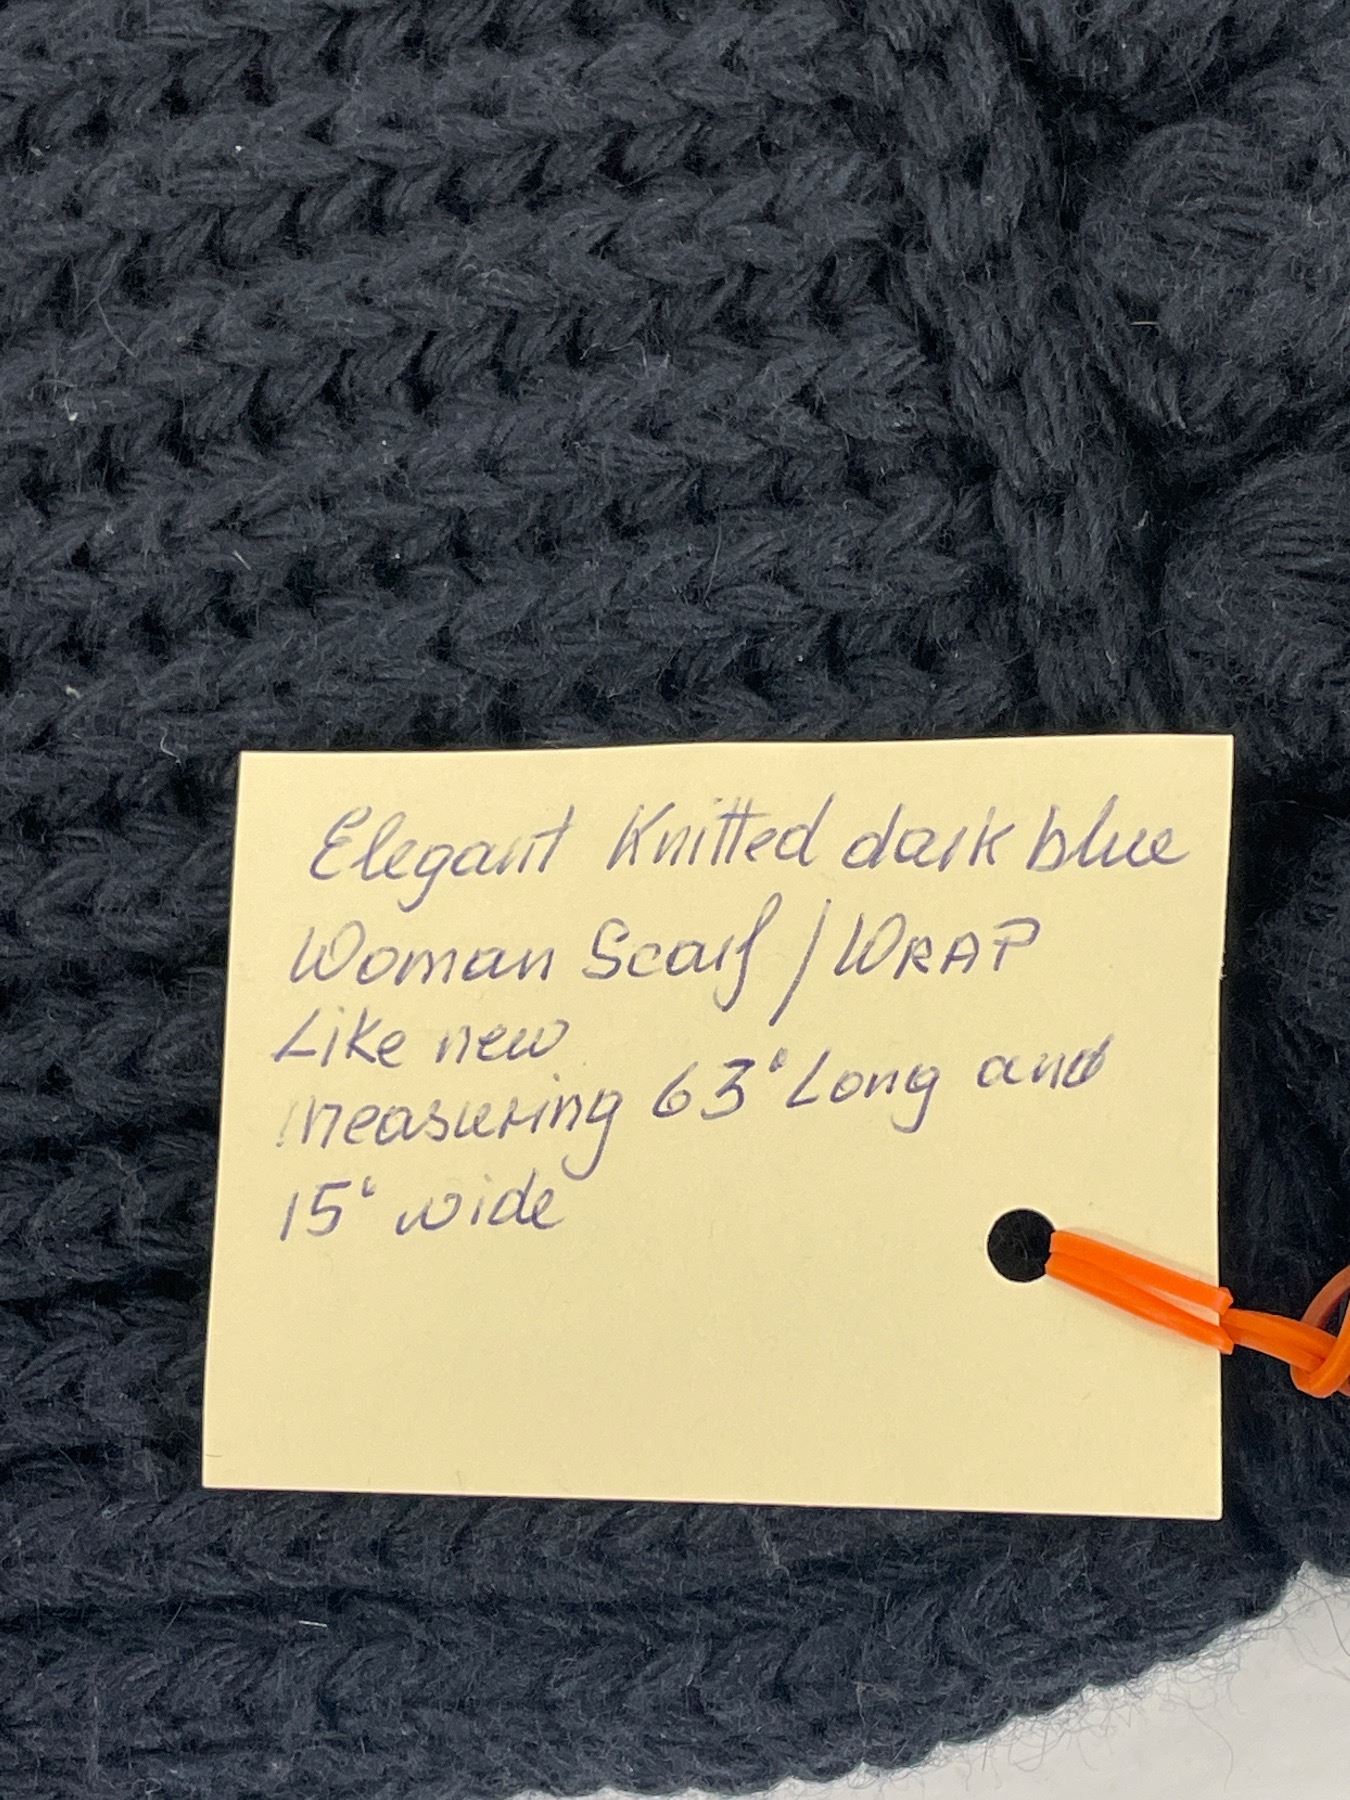 Elegant Knitted dark blue
Woman Scarf / WRAP
Like new
measuring 63" Long and
15" wide